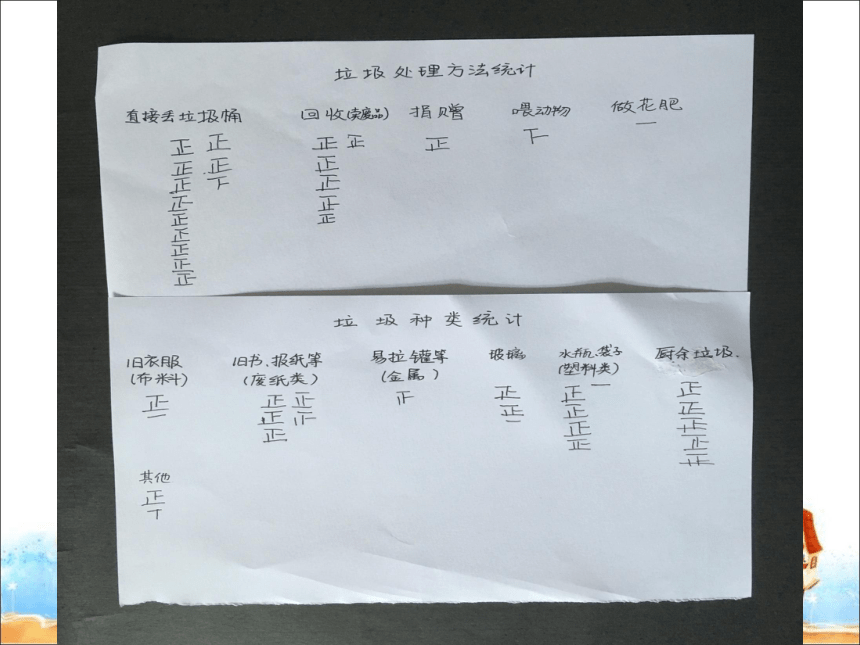 垃圾处理方法统计
直接丢垃圾桶 回收(卖废品) 捐赠 喂动物 做花肥
正 正 正 正 正 下 一
正 正 正
正 下 正
正 正
正 正
正
正
正
正
垃圾种类统计
旧衣服 旧书、报纸等 易拉罐等 玻璃 水瓶、袋子 厨余垃圾.
(布料) (废纸类) (金属) (塑料类)
正 正 正 正 正 正 一 正
一 正 正 正 正 正
正 一 正 正
正 正
正
其他
正
丅